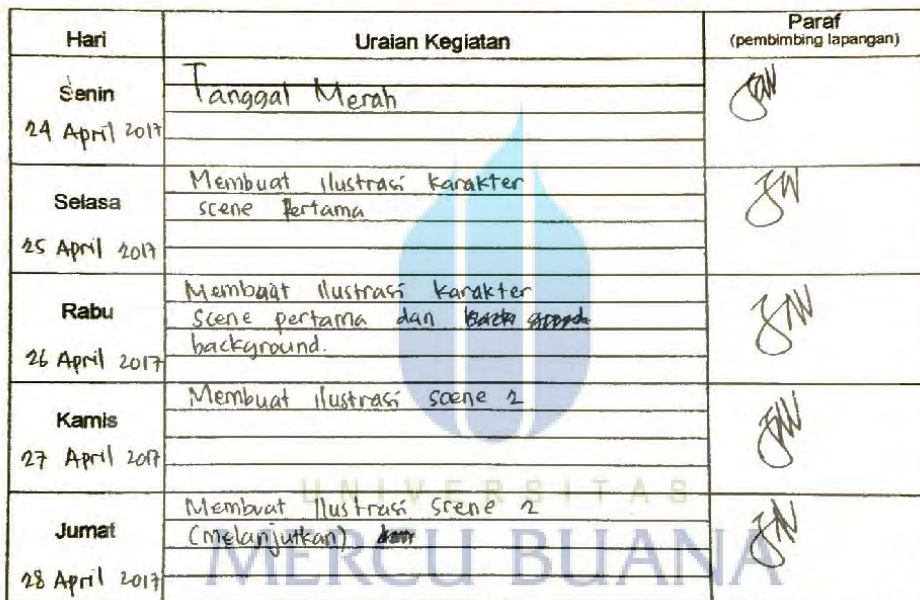 Hari Uraian Kegiatan Paraf
(pembimbing lapangan)
Senin
24 April 2017
Tanggal Merah
Selasa
25 April 2017
Membuat ilustrasi karakter
scene Pertama
Rabu
26 April 2017
Membuat ilustrasi karakter
scene pertama dan
background.
Kamis
27 April 2017
Membuat ilustrasi scene 2
Jumat
28 April 2017
Membuat ilustrasi scene 2
(melanjutkan)
UNIVERSITAS
MERCU BUANA